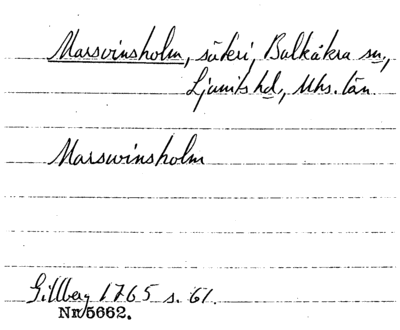 Marsvinsholm, säteri, Balkåkra sn.,
Ljunits hd., Mhs. län.
Marswinsholm
Gillberg 1765 s. 61.
Nr. 5662.